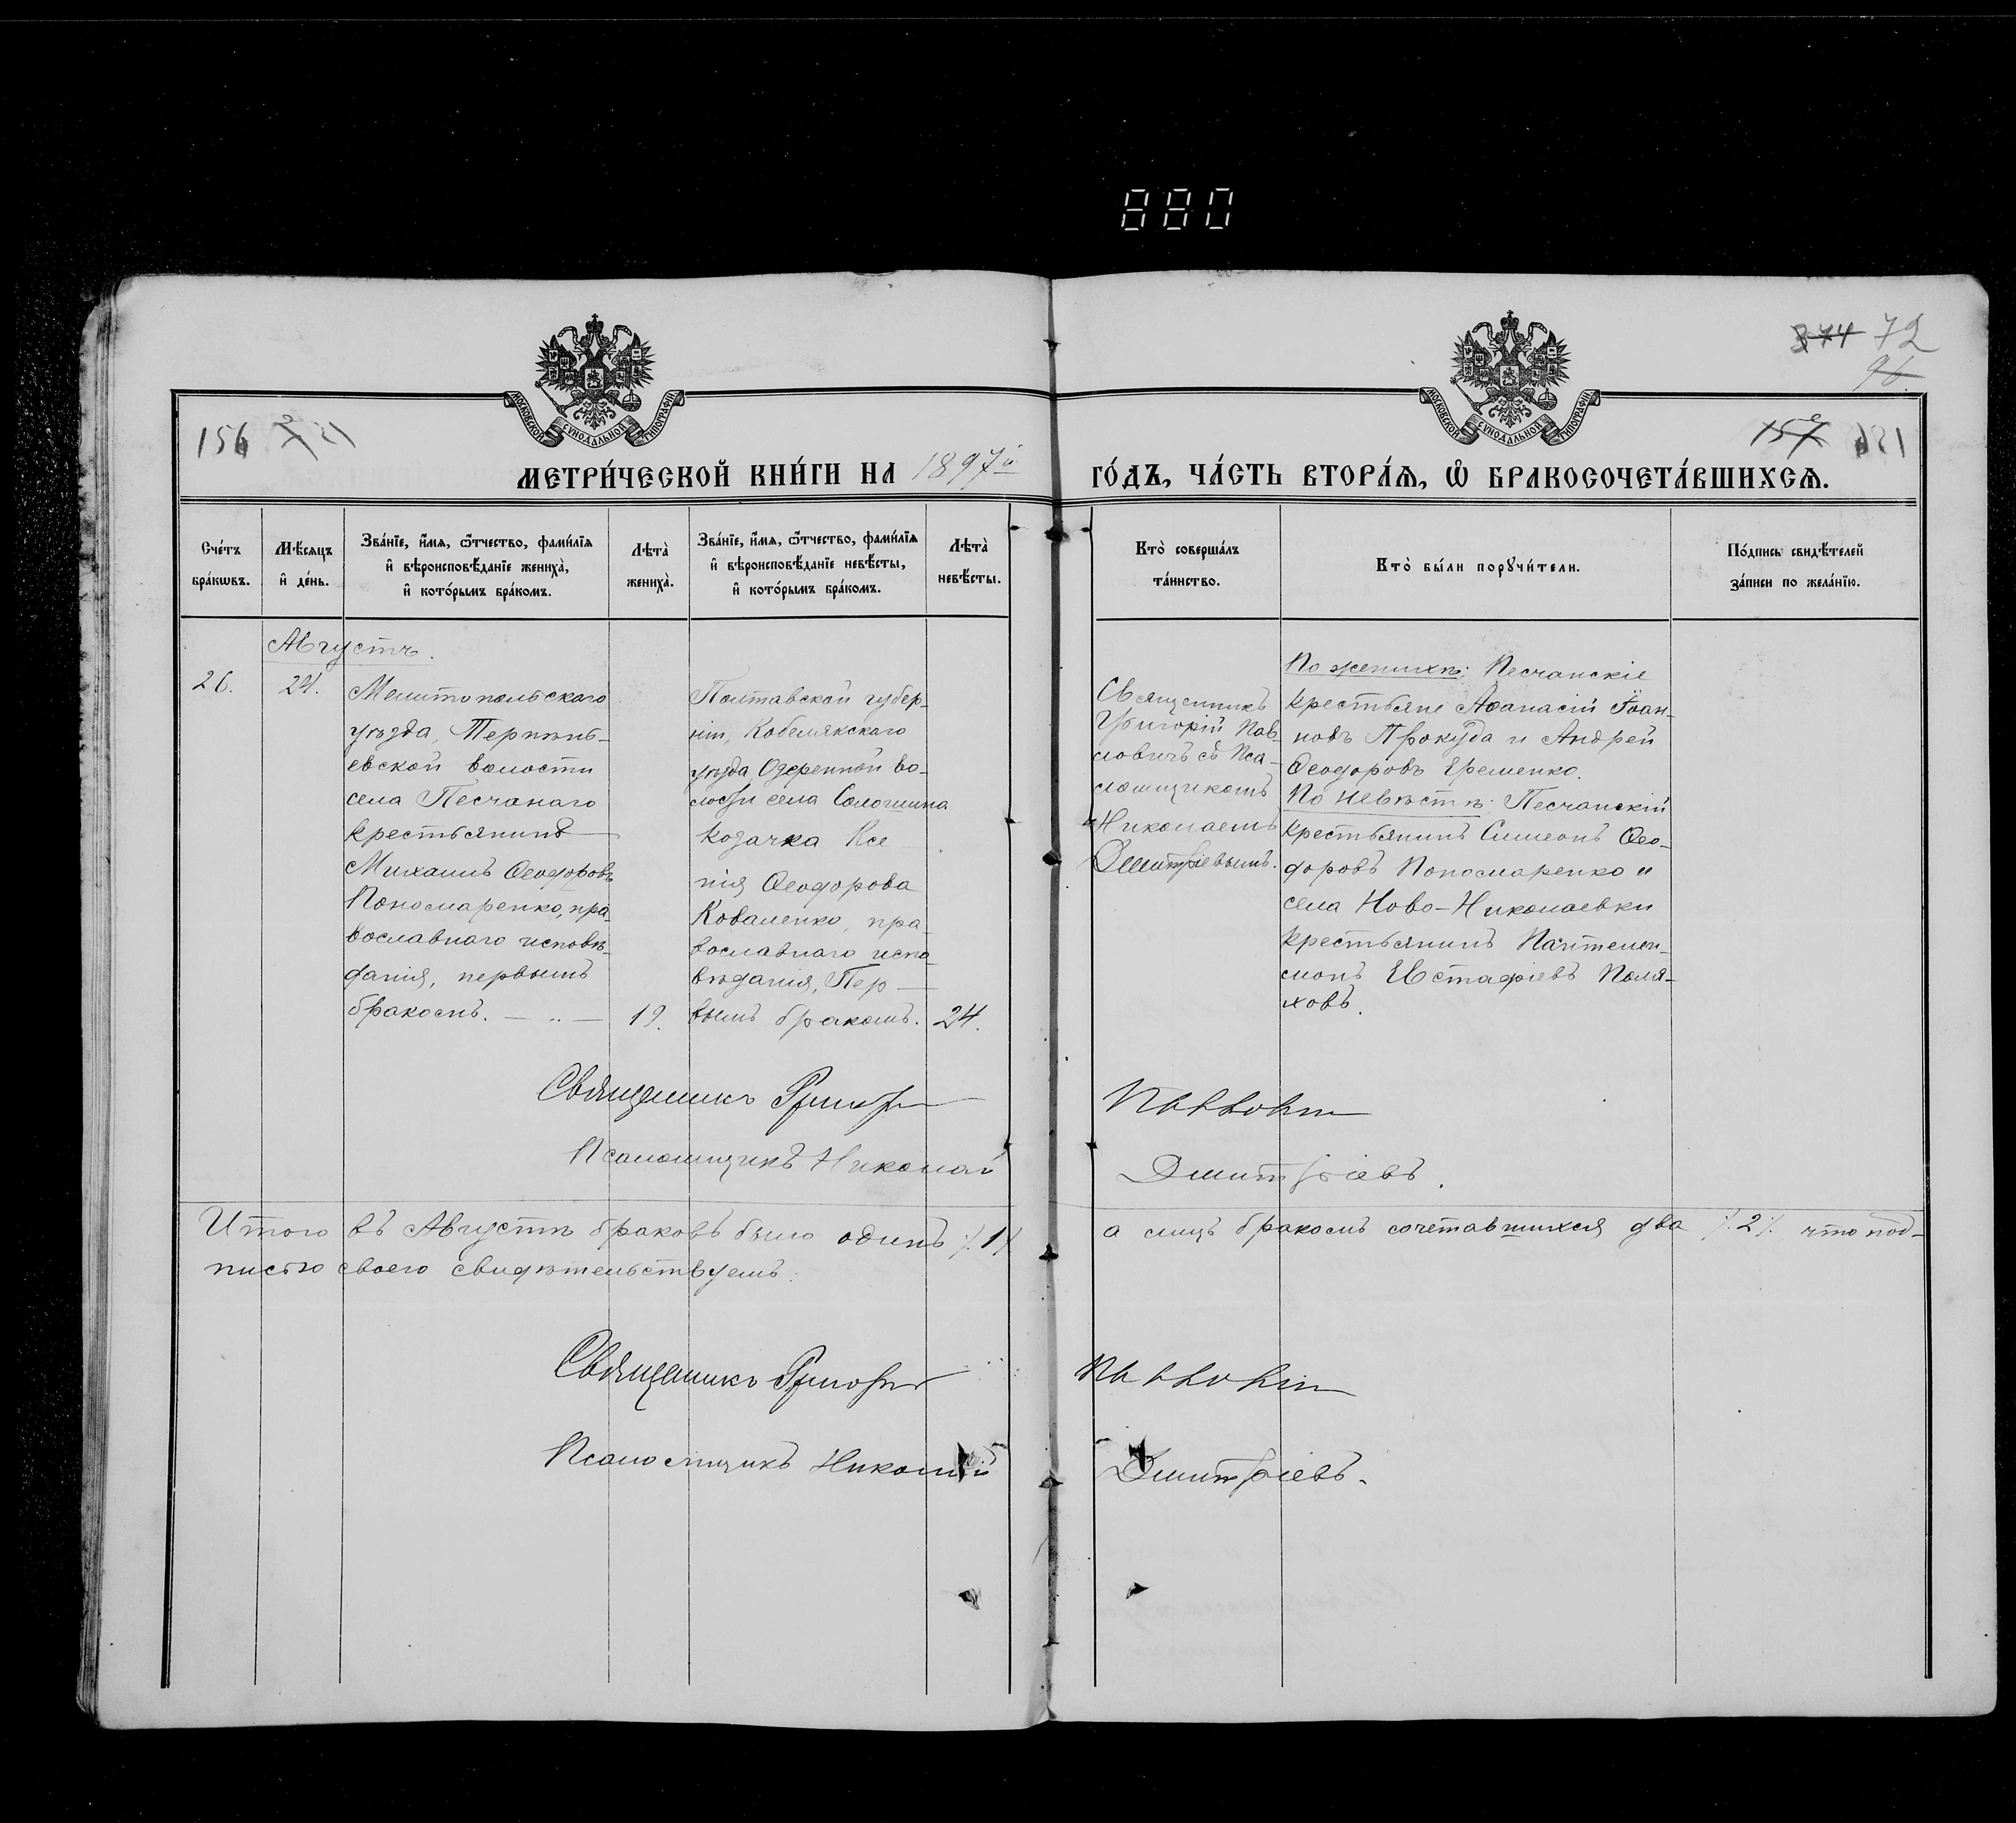 880
374 72
96
МОСКОВСКОЙ СѴНОДАЛЬНОЙ ТИПОГРАФІИ
МОСКОВСКОЙ СѴНОДАЛЬНОЙ ТИПОГРАФІИ
156
157
МЕТРИ́ЧЕСКОЙ КНИ́ГИ НА 1897й
ГО́ДЪ, ЧА́СТЬ ВТОРА́Ѧ, Ѡ҆ БРАКОСОЧЕТА́ВШИХСѦ.
Сче́тъ
бра́кѡвъ.
Мѣ́сяцъ
и҆ де́нь.
Зва́нїе, и҆́мя, ѻ҆́тчество, фами́лїя
и҆ вѣроисповѣ́данїе жениха̀,
и҆ кото́рымъ бра́комъ.
Лѣта̀
жениха̀.
Зва́нїе, и҆́мя, ѻ҆́тчество, фами́лїя
и҆ вѣроисповѣ́данїе невѣ́сты,
и҆ кото́рымъ бра́комъ.
Лѣта̀
невѣ́сты.
Кто̀ соверша́лъ
та́инство.
Кто̀ бы́ли порꙋчи́тели.
По́дпись свидѣ́телей
за́писи по жела́нїю.
Августъ.
26.
24.
Мелитопольскаго
уѣзда, Терпѣнь-
евской волости
села Песчанаго
крестьянинъ
Михаилъ Ѳеодоровъ
Пономаренко, пра-
вославнаго исповѣ-
данія, первымъ
бракомъ. — „ —
19.
Полтавской губер-
ніи, Кобелякскаго
уѣзда, Озеренной во-
лости села Солошина
козачка Ксе-
нія Ѳеодорова
Коваленко, пра-
вославнаго испо-
вѣданія, Пер-
вымъ бракомъ.
24.
Священникъ
Григорій Пав-
ловичъ съ Пса-
ломщикомъ
Николаемъ
Дмитріевымъ.
По женихѣ: Песчанскіе
крестьяне Аѳанасій Іоан-
новъ Прокуда и Андрей
Ѳеодоровъ Еременко.
По невѣстѣ: Песчанскій
крестьянинъ Симеонъ Ѳео-
доровъ Пономаренко и
села Ново-Николаевки
крестьянинъ Пантелеи-
монъ Евстафіевъ Поля-
ховъ.
Священникъ Григорій Павловичъ
Псаломщикъ Николай Дмитріевъ.
Итого въ Августѣ браковъ было одинъ ⁒1⁒ а лицъ бракомъ сочетавшихся два ⁒2⁒ что под-
писью своего свидѣтельствуемъ.
Священникъ Григорій Павловичъ
Псаломщикъ Николай Дмитріевъ.